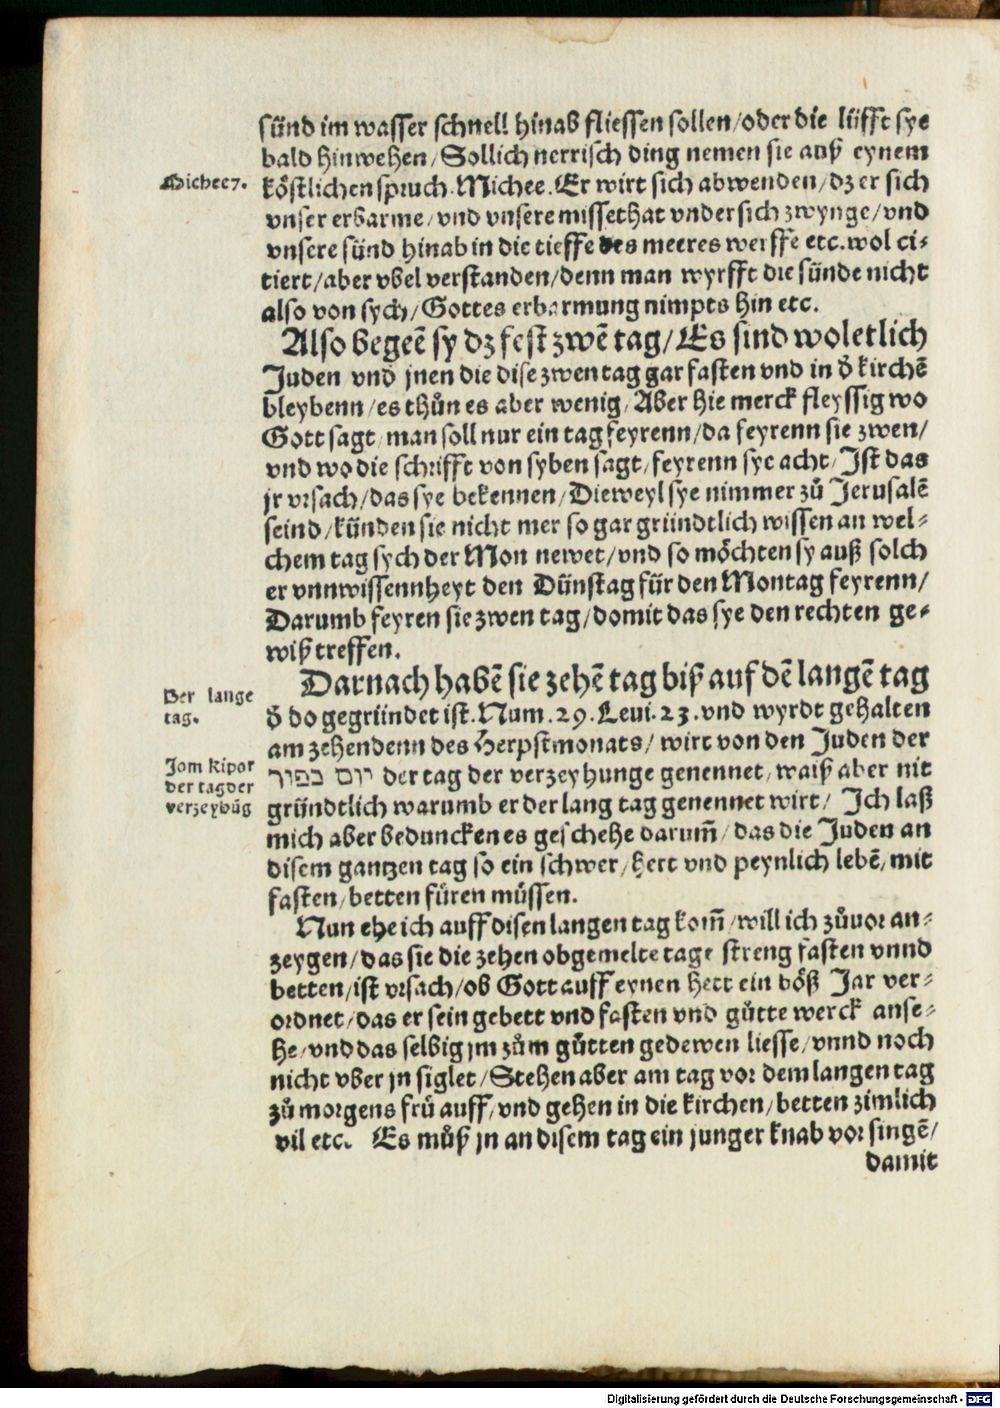 sünd im wasser schnell hinab fliessen sollen/oder die lüfft sye
bald hinwehen/Sollich nerrisch ding nemen sie auß eynem
Michee 7.
köstlichen spruch Michee. Er wirt sich abwenden/dz er sich
vnser erbarme/vnd vnsere missethat vndersich zwynge/vnd
vnsere sünd hinab in die tieffe des meeres werffe etc. wol ci⸗
tiert/aber vbel verstanden/denn man wyrfft die sünde nicht
also von sych/Gottes erbarmung nimpts hin etc.
Also begeē sy dz fest zwē tag/Es sind wol etlich
Juden vnd jnen die dise zwen tag gar fasten vnd in d̄ kirchē
bleybenn/es thůn es aber wenig/Aber hie merck fleyssig wo
Gott sagt/man soll nur ein tag feyrenn/da feyrenn sie zwen/
vnd wo die schrifft von syben sagt/feyrenn sye acht/Ist das
jr vrsach/das sye bekennen/Dieweyl sye nimmer zů Jerusalē
seind/künden sie nicht mer so gar gründtlich wissen an wel⸗
chem tag sych der Mon newet/vnd so möchten sy auß solch
er vnnwissennheyt den Dünstag für den Montag feyrenn/
Darumb feyren sie zwen tag/domit das sye den rechten ge⸗
wiß treffen.
Darnach habē sie zehē tag biß auf dē langē tag
Der lange
tag.
d̄ do gegründet ist. Num. 29. Leui. 23. vnd wyrdt gehalten
am zehendenn des Herpstmonats/wirt von den Juden der
Jom kipor
der tag der
verzeyhūg
יום כפור der tag der verzeyhunge genennet/waiß aber nit
gründtlich warumb er der lang tag genennet wirt/ Ich laß
mich aber beduncken es geschehe darum̄/das die Juden an
disem gantzen tag so ein schwer/hert vnd peynlich lebē/mit
fasten/betten füren müssen.
Nun ehe ich auff disen langen tag kom̄/will ich zůuor an⸗
zeygen/das sie die zehen obgemelte tage streng fasten vnnd
betten/ist vrsach/ob Gott auff eynen hett ein böß Jar ver⸗
ordnet/das er sein gebett vnd fasten vnd gůtte werck anse⸗
he/vnd das selbig jm zům gůtten gedewen liesse/vnnd noch
nicht vber jn siglet/Stehen aber am tag vor dem langen tag
zů morgens frü auff/vnd gehen in die kirchen/betten zimlich
vil etc. Es můß jn an disem tag ein junger knab vor singē/
damit
Digitalisierung gefördert durch die Deutsche Forschungsgemeinschaft - DFG